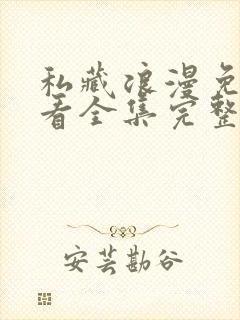 私藏浪漫免
看全集完整
安芸勘谷